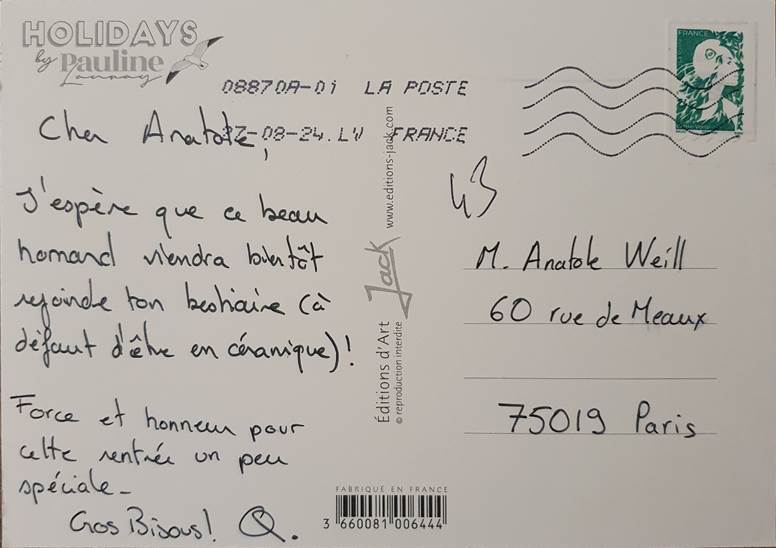 HOLIDAYS
by Pauline
Launay
08870A-01 LA POSTE
27-08-24.LV FRANCE
FRANCE
Cher Anatole,
J'espère que ce beau
homard viendra bientôt
rejoindre ton bestiaire (à
défaut d'être en céramique)!
Force et honneur pour
cette rentrée un peu
spéciale-
Gros Bisous! Q.
Éditions d'Art Jack www.editions-jack.com
© reproduction interdite
FABRIQUÉ EN FRANCE
3 660081 006444
43
M. Anatole Weill
60 rue de Meaux
75019 Paris